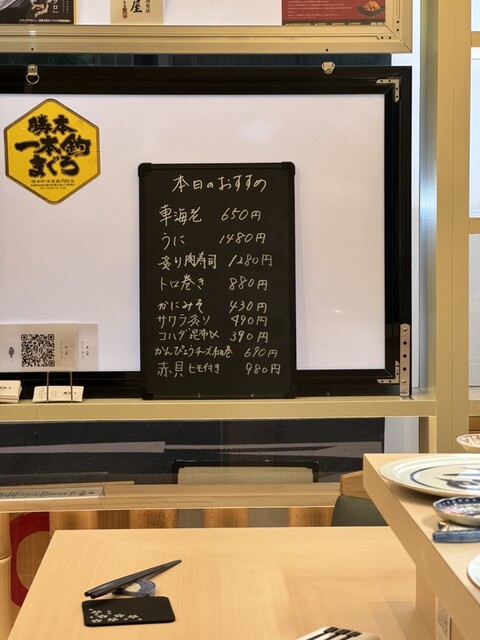 屋
勝本
一本釣
まぐろ
本日のおすすめ
車海老 650円
うに 1480円
炙り肉寿司 1280円
トロ巻き 880円
かにみそ 430円
サワラ炙り 490円
コハダ昆布〆 390円
かんぴょうチーズ細巻 690円
赤貝ヒモ付き 980円